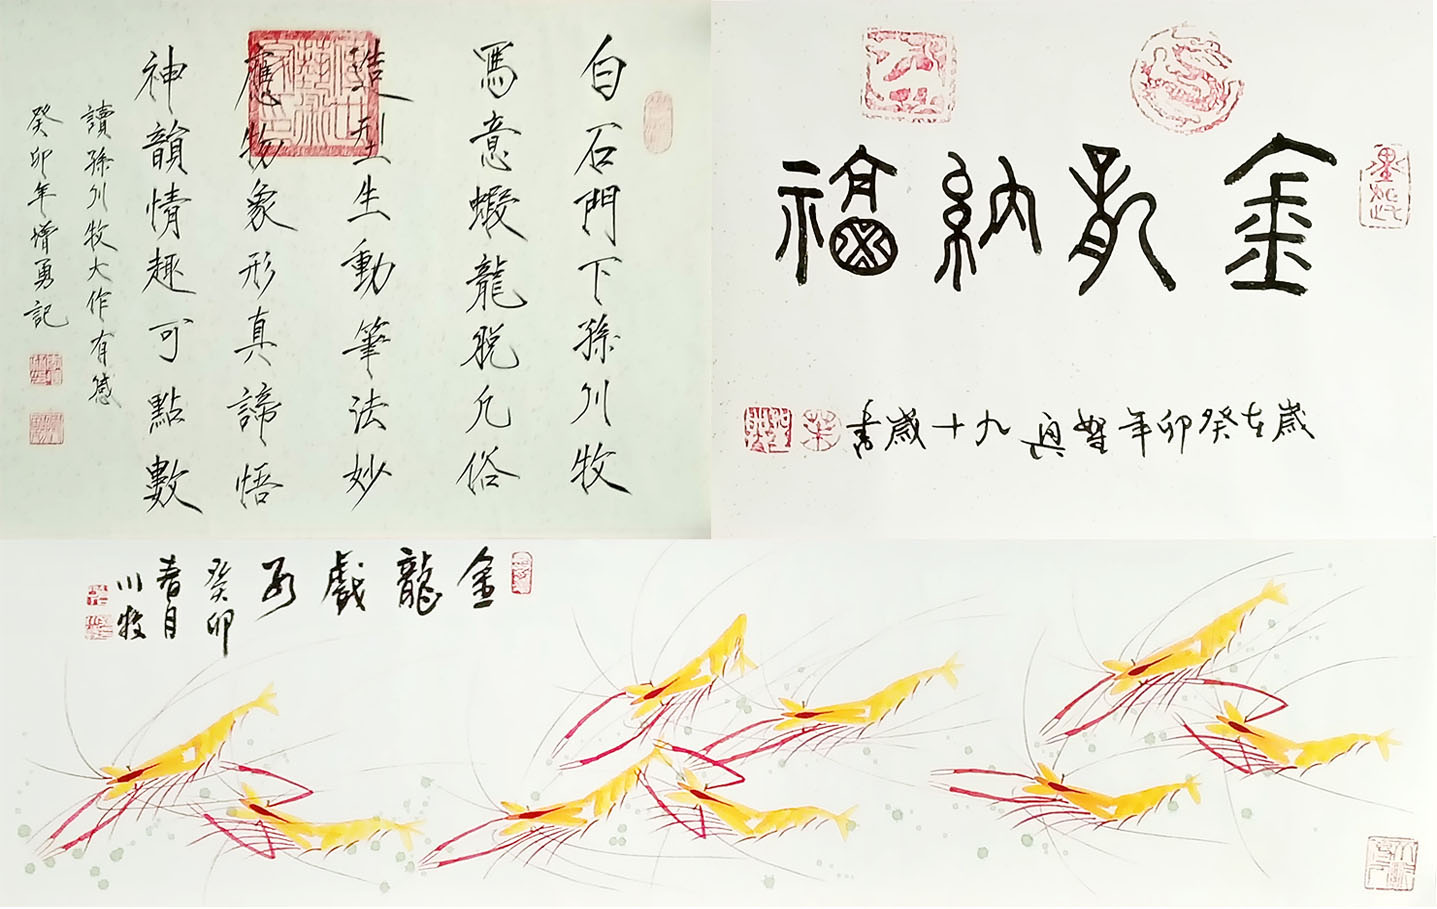 白石門下孫川牧
寫意蝦龍脫凡俗
造型生動筆法妙
應物象形真諦悟
神韻情趣可點數
讀孫川牧大作有感
癸卯年增勇記
金龍納福
歲在癸卯年 九十歲書
金龍戲水
癸卯
春月
川牧